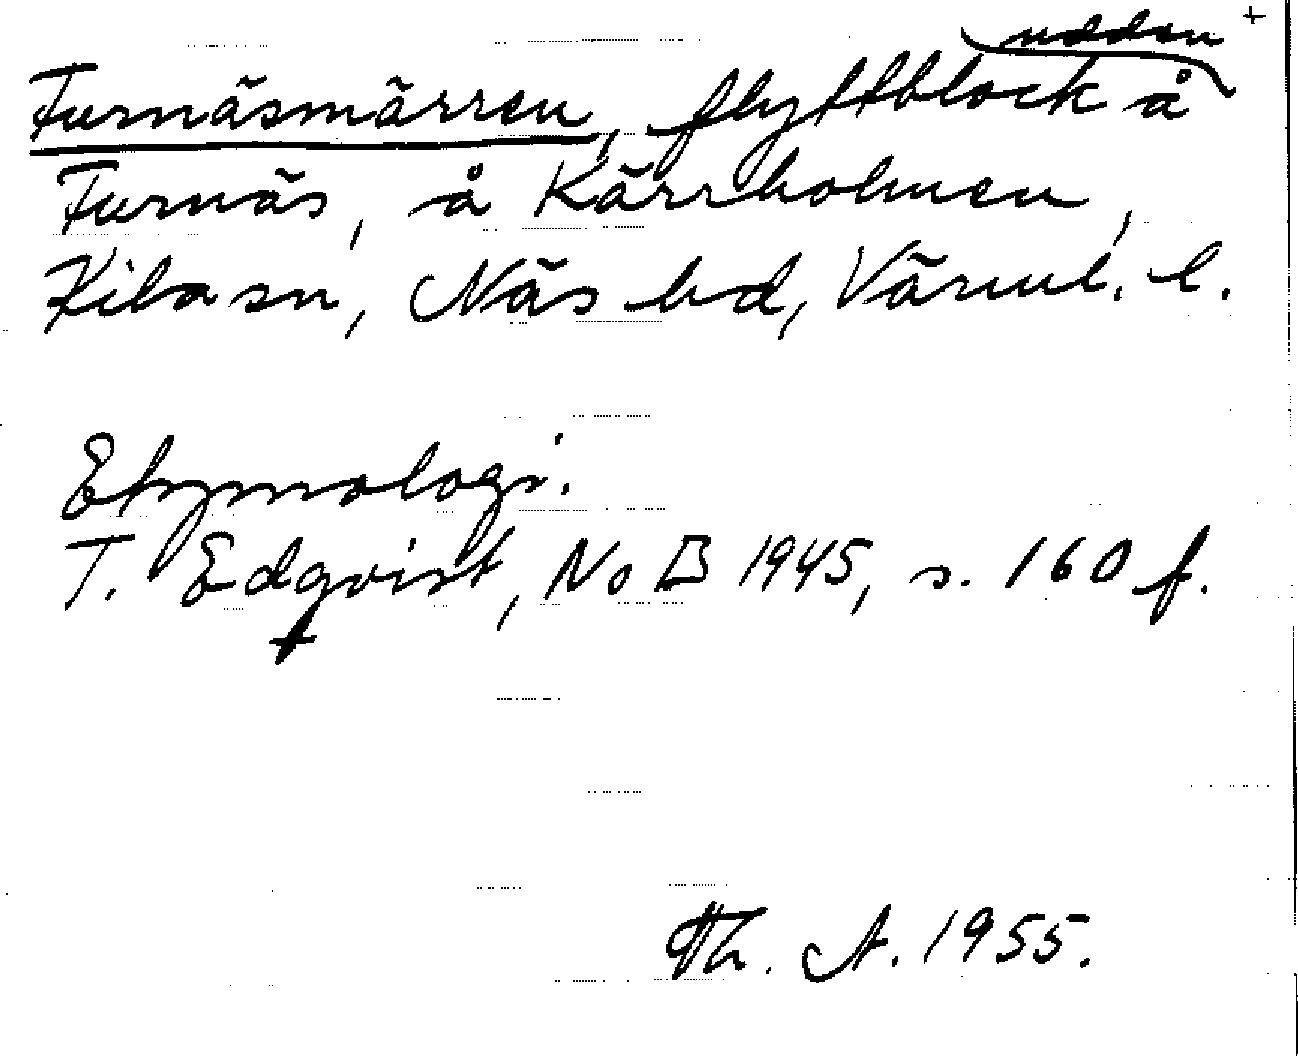 udden +
Furnäsmärren, flyttblock å
Furnäs, å Kärrholmen,
Kila sn, Näs hd, Värml. l.
Etymologi.
T. Edqvist, NoB 1945, s. 160 f.
+
Th. A. 1955.